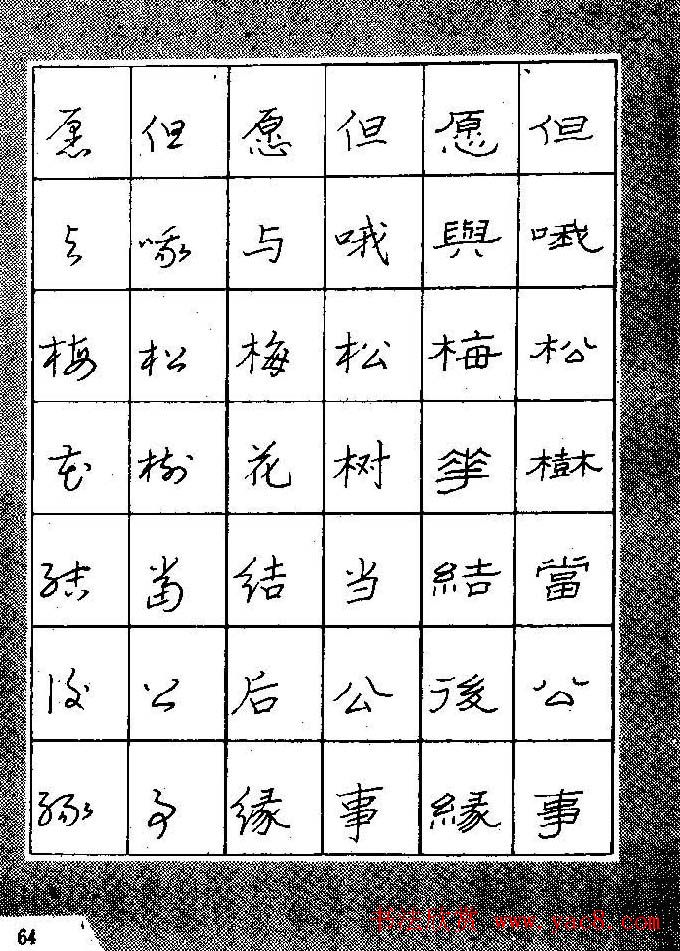 但哦松樹當公事
愿與梅華結後緣
但哦松树当公事
愿与梅花结后缘
但哦松樹當公事
愿与梅花結後緣
64
书法欣赏 www.yac8.com